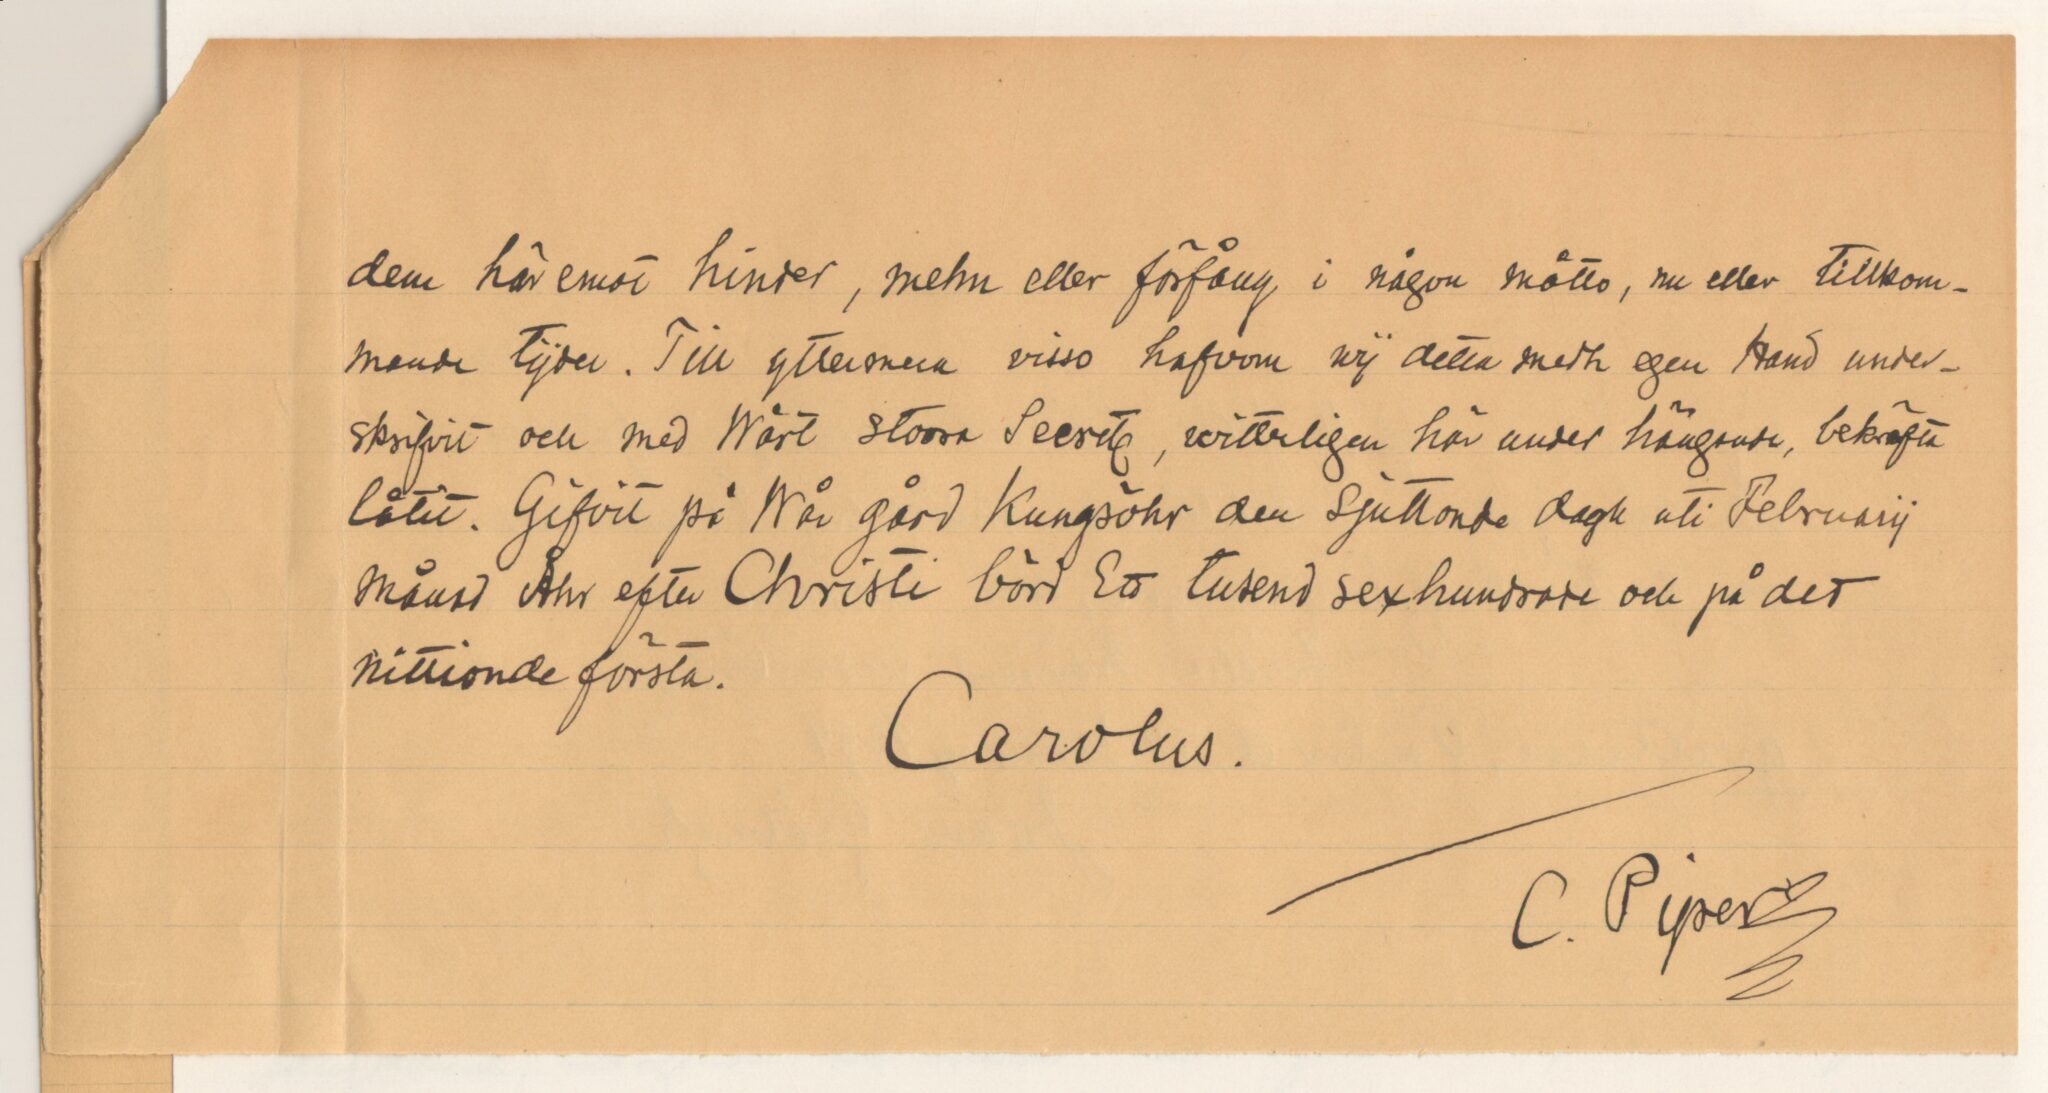 dem här emot hinder, mehn eller förfång i någon måtto, nu eller tillkom-
mande tijder. Till yttermera visso hafvom wij detta medh egen Hand under-
skrifvit och med Wårt stoora Secret, witterligen här under hängande, bekräfta
låtit. Gifvit på Wår gård Kungsöhr den Sjuttonde dagh uti Februarij
månad Åhr efter Christi börd Ett tusend sexhundrade och på det
nittionde första.
Carolus.
C. Piper